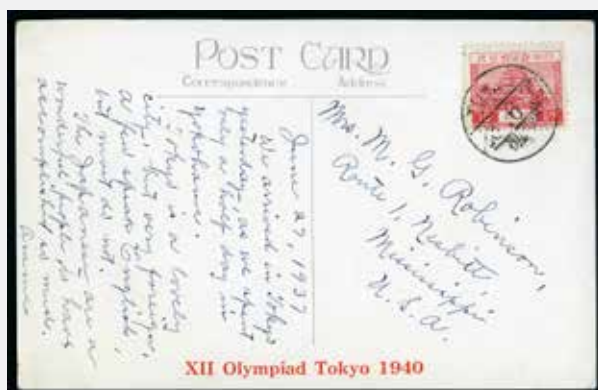 POST CARD
Correspondence
Address
June 27, 1937
We arrived in Tokyo
yesterday, as we spent
only a half day in
Yokohama.
Tokyo is a lovely
city, but very foreign.
A few speak English,
but most do not.
The Japanese are a
wonderful people to have
accomplished so much.
Mrs. M. G. Robinson,
Route 1, Nesbitt,
Mississippi
U.S.A.
XII Olympiad Tokyo 1940